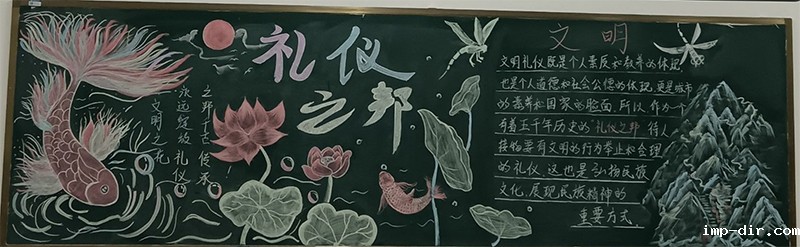 礼仪
之邦
之邦千古传承
永远绽放礼仪
文明之花
文明
文明礼仪既是个人素质和教养的体现,
也是个人道德和社会公德的体现,更是城市
的素养和国家的脸面,所以,作为一个
有着五千年历史的"礼仪之邦",待人
接物要有文明的行为举止和合理
的礼仪,这也是弘扬民族
文化、展现民族精神的
重要方式。
imp-dir.com